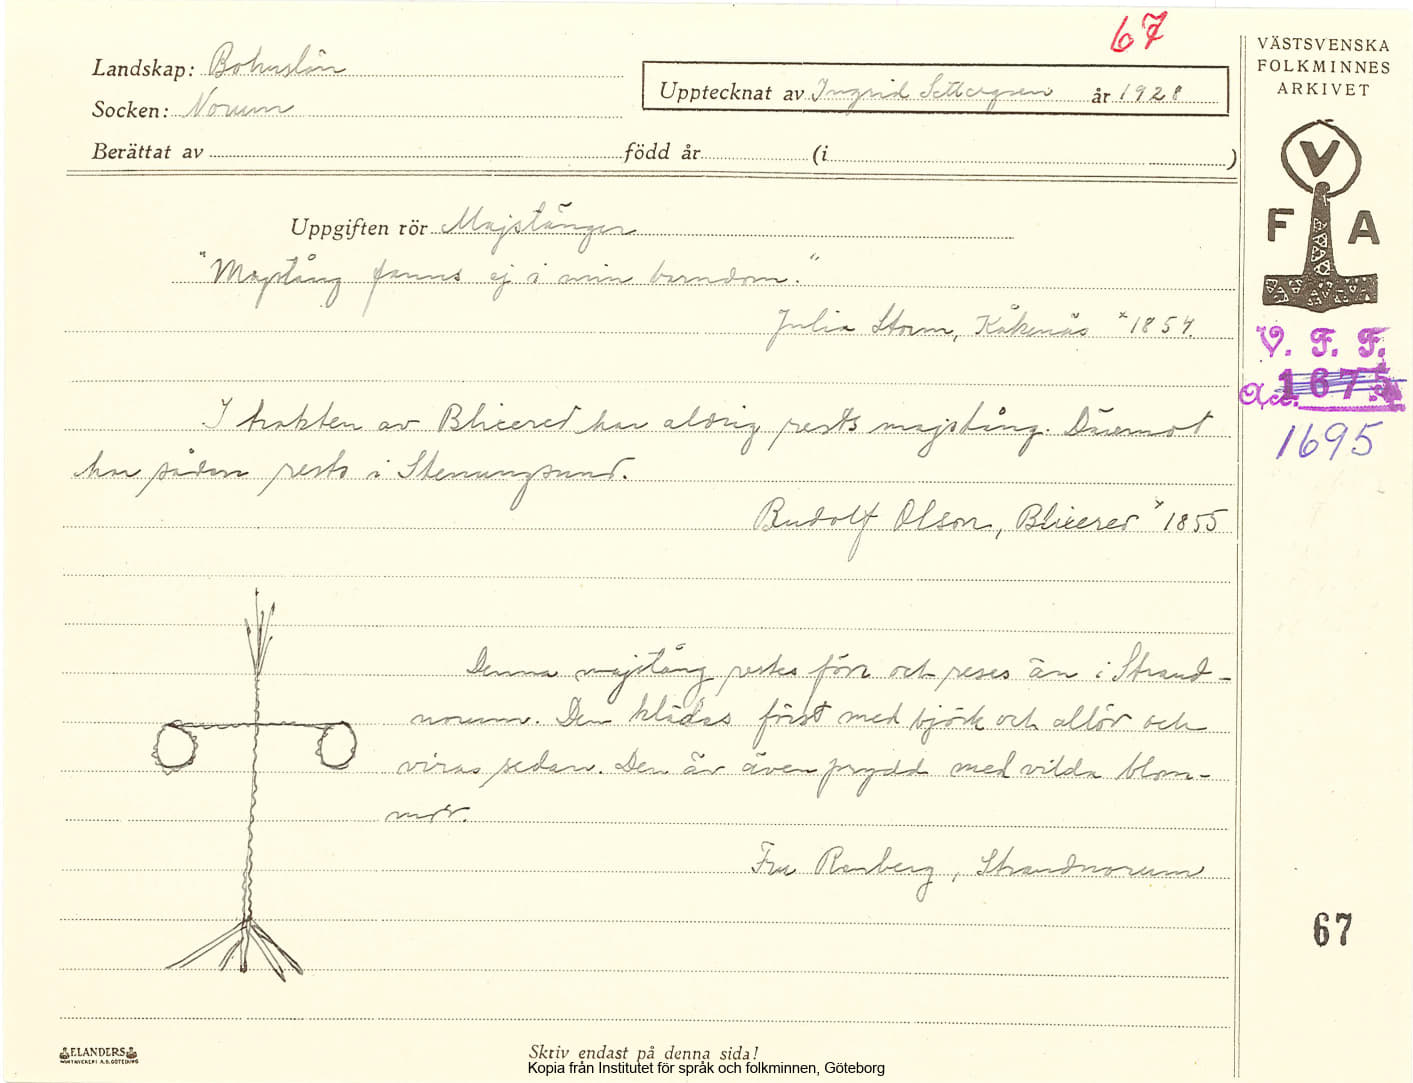 67
VÄSTSVENSKA
FOLKMINNES
ARKIVET
Landskap: Bohuslän
Upptecknat av Ingrid Settergren år 1928
Socken: Norum
Berättat av född år (i )
V
F A
Uppgiften rör Majstänger
"Majstång fanns ej i min barndom."
Julia Storm, Kåkenäs *1854.
V. F. F.
Acc. 1675
1695
I trakten av Blixered har aldrig rests majstång. Däremot
har sådan rests i Stenungsund.
Rudolf Olson, Blixered *1855
Denna majstång restes förr och reses än i Strand-
norum. Den klädes först med björk och allöv och
viras sedan. Den är även prydd med vilda blom-
mor.
Fru Ramberg, Strandnorum
67
ELANDERS
BOKTRYCKERI A.B. GÖTEBORG
Skriv endast på denna sida!
Kopia från Institutet för språk och folkminnen, Göteborg